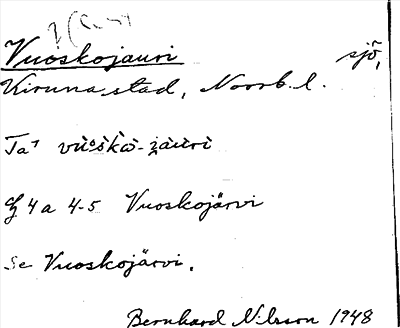 Vuoskojauri sjö,
Kiruna stad, Norrb. l.
Ta⁺ vùoskò-jàùrì
4a 4-5 Vuoskojärvi
Se Vuoskojärvi.
Bernhard Nilsson 1948